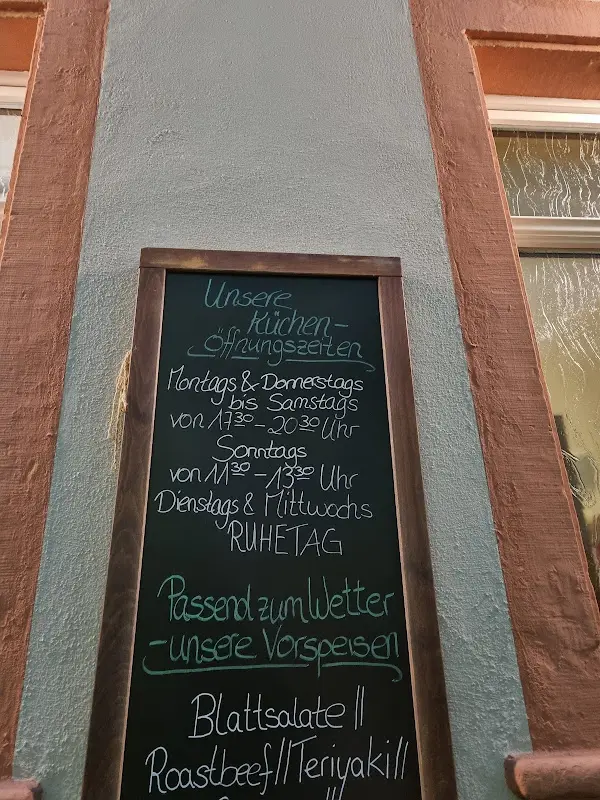 Unsere
Küchen-
Öffnungszeiten
Montags & Donnerstags
bis Samstags
von 17³⁰ - 20³⁰ Uhr
Sonntags
von 11³⁰ - 13³⁰ Uhr
Dienstags & Mittwochs
RUHETAG
Passend zum Wetter
- unsere Vorspeisen
Blattsalate //
Roastbeef // Teriyaki //